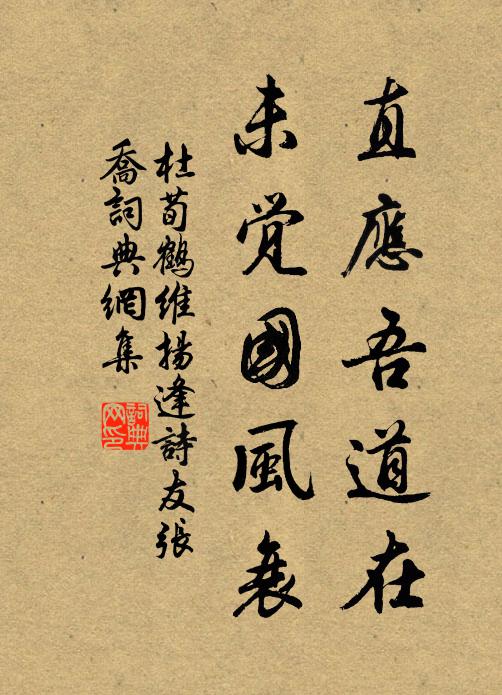 直應吾道在
未覺國風衰
杜荀鶴維揚逢詩友張
喬詞典網集
詞典
网印